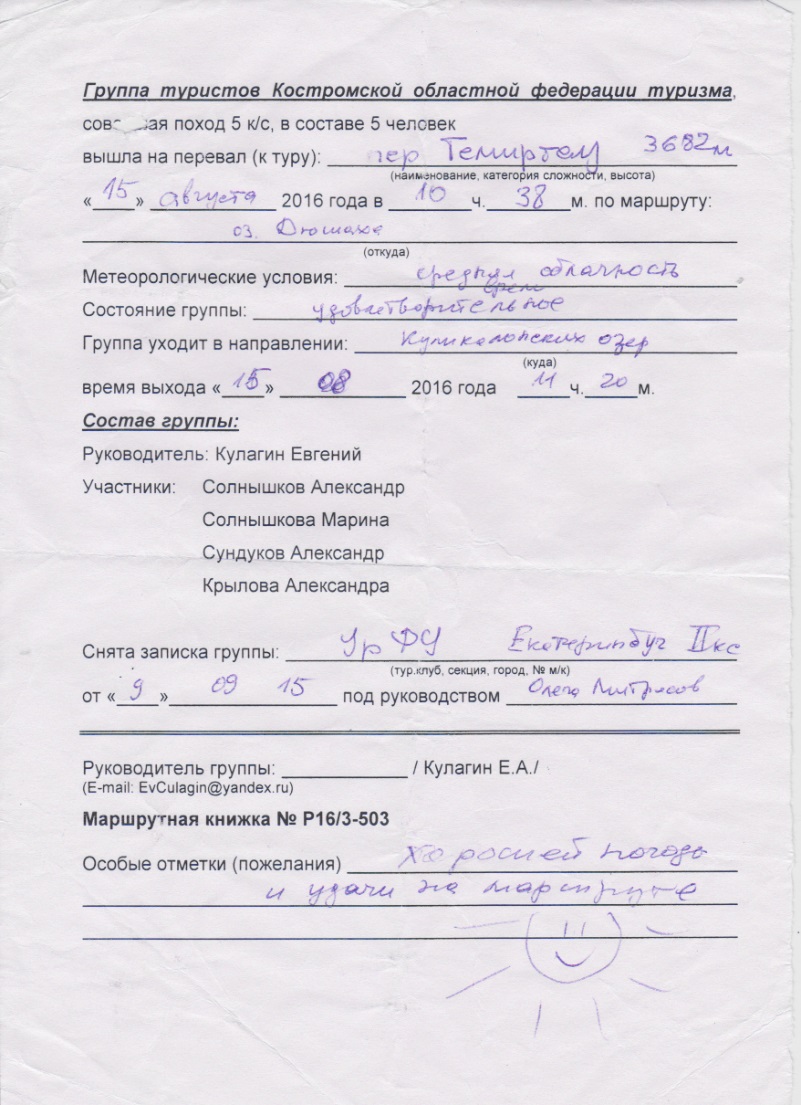 Группа туристов Костромской областной федерации туризма,
поход 5 к/с, в составе 5 человек
вышла на перевал (к туру): пер Темиртем 3682м
(наименование, категория сложности, высота)
«15» августа 2016 года в 10 ч. 38 м. по маршруту:
оз. Дюшаха
(откуда)
Метеорологические условия: средняя облачность
Состояние группы: удовлетворительное
Группа уходит в направлении: Куликалонских озер
(куда)
время выхода «15» 08 2016 года 11 ч. 20 м.
Состав группы:
Руководитель: Кулагин Евгений
Участники: Солнышков Александр
Солнышкова Марина
Сундуков Александр
Крылова Александра
Снята записка группы: УрФУ Екатеринбург II кс
(тур.клуб, секция, город, № м/к)
от «9» 09 15 под руководством Олега
Руководитель группы: ____________ / Кулагин Е.А./
(E-mail: EvCulagin@yandex.ru)
Маршрутная книжка № Р16/3-503
Особые отметки (пожелания) Хорошей погоды
и удачи на маршруте